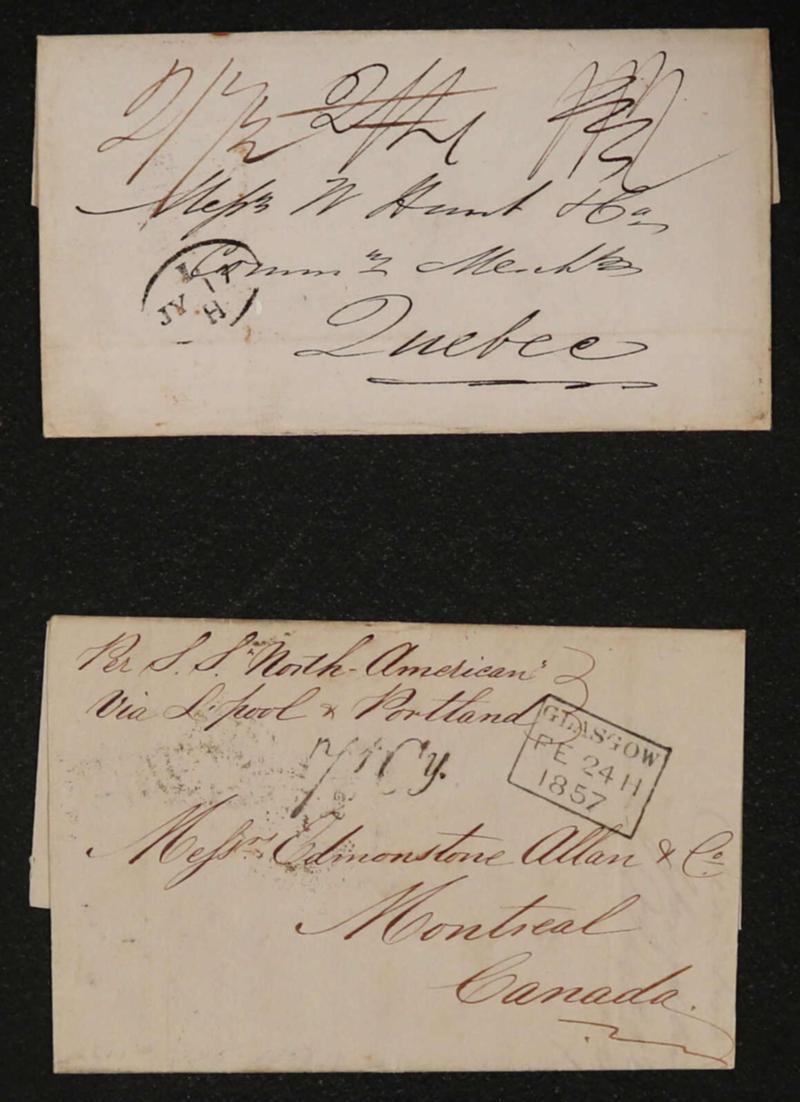 Messrs W Hunt & Co
Comm'n Merchts
Quebec
L
JY 17
H
Per S. S. "North-American"
Via L'pool & Portland
GLASGOW
FE 24 H
1857
Cy.
Messrs Edmonstone Allan & Co
Montreal
Canada.